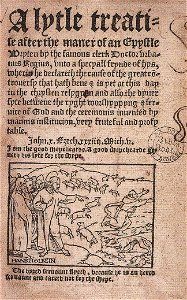 A lytle treati-
se after the maner of an Epystle
wryten by the famous clerk Doctor Urba-
nus Regius, unto a specyall frynde of hys,
wherin he declareth the cause of the great
troversy that hath bene & is yet at this day
in the chrysten relygyon and also the dyver
syte betwene the ryght worshyppyng &
vice of God and the ceremonies invented by
mannis institucyon, very fruteful and profy
table.
John.x. Ezech.xxxiiij. Mich.v.
I am the good shepeheard. A good shepehearde ge
veth his lyfe for the shepe.
HANS HOLBEIN
The hyred servaunt flyeth, because he is an hyred
servaunt and careth not for the shepe.